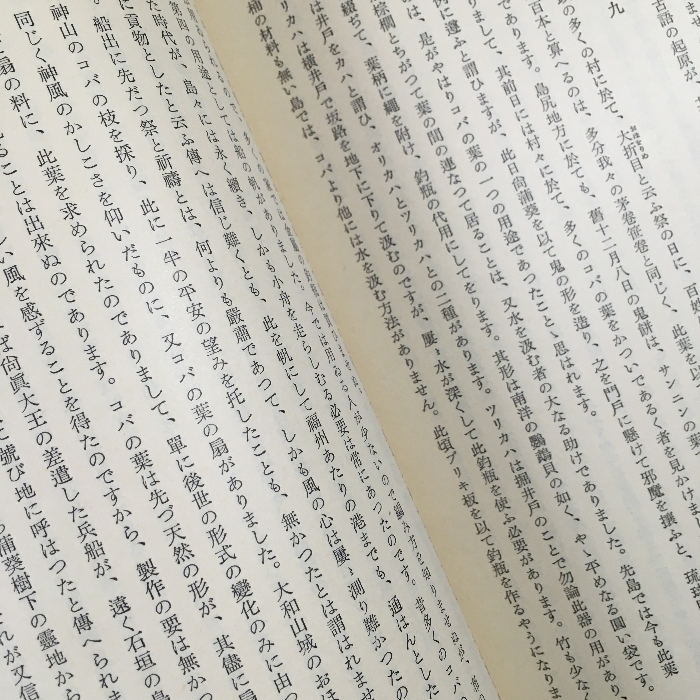 九
古語の起原が
の多くの村に於て、大折目と云ふ祭の日に、百姓
おほをりめ
百本と算へるのは、多分我々の茅卷笹卷と同じく、此葉を以
であります。島尻地方に於ても、舊十二月八日の鬼餅は、サンニンの葉
まして、其前日には村々に於て、多くのコバの葉をかついであるく者を見かけま
に遊ぶと謂ひますが、此日尙蒲葵を以て鬼の形を造り、之を門戶に懸けて邪魔を攘ふと
は、是がやはりコバの葉の一つの用途であつたこと、思はれます。
棕櫚とちがつて葉の間の連なつて居ることは、又水を汲む者の大なる助けでありました。先島では今も此葉
綴ぢて、葉柄に繩を附け、釣瓶の代用にしてをります。其形は南洋の鸚鵡貝の如く、やゝ平めなる圓い袋です。
は井戶をカハと謂ひ、オリカハとツリカハとの二種があります。ツリカハは掘井戶のことで勿論此器の用があり
リカハは橫井戶で坂路を地下に下りて汲むのですが、屢〻水が深くして此釣瓶を使ふ必要があります。竹も少な
桶の材料も無い島では、コバより他には水を汲む方法がありません。此頃ブリキ板を以て釣瓶を作るやうになりま
第四の用途としては船の帆、しかも小舟を走らしむる必要は常にあつたのです。昔多くのコバの
た時代が、島々には永く續き、しかも此を帆にして福州あたりの港までも、通はんとした
に貢物としたと云ふ傳へは信じ難くとも、
船出に先だつ祭と祈禱とは、何よりも嚴肅であつて、しかも風の心は屢〻測り難かつたの
神山のコバの枝を採り、此に一半の平安の望みを托したことも、無かつたとは謂はれませ
同じく神風のかしこさを仰いだものに、又コバの葉の扇がありました。大和山城のおほ
扇の料に、此葉を求められたのでありまして、單に後世の形式の變化のみに由つ
ることは出來ぬのであります。コバの葉は先づ天然の形が、其儘に扇
しい風を感ずることを得たのですから、製作の要は無かつ
ば尙眞大王の差遣した兵船が、遠く石垣の島
に號び地に呼はつたと傳へられま
蒲葵樹下の靈地から
れが又信